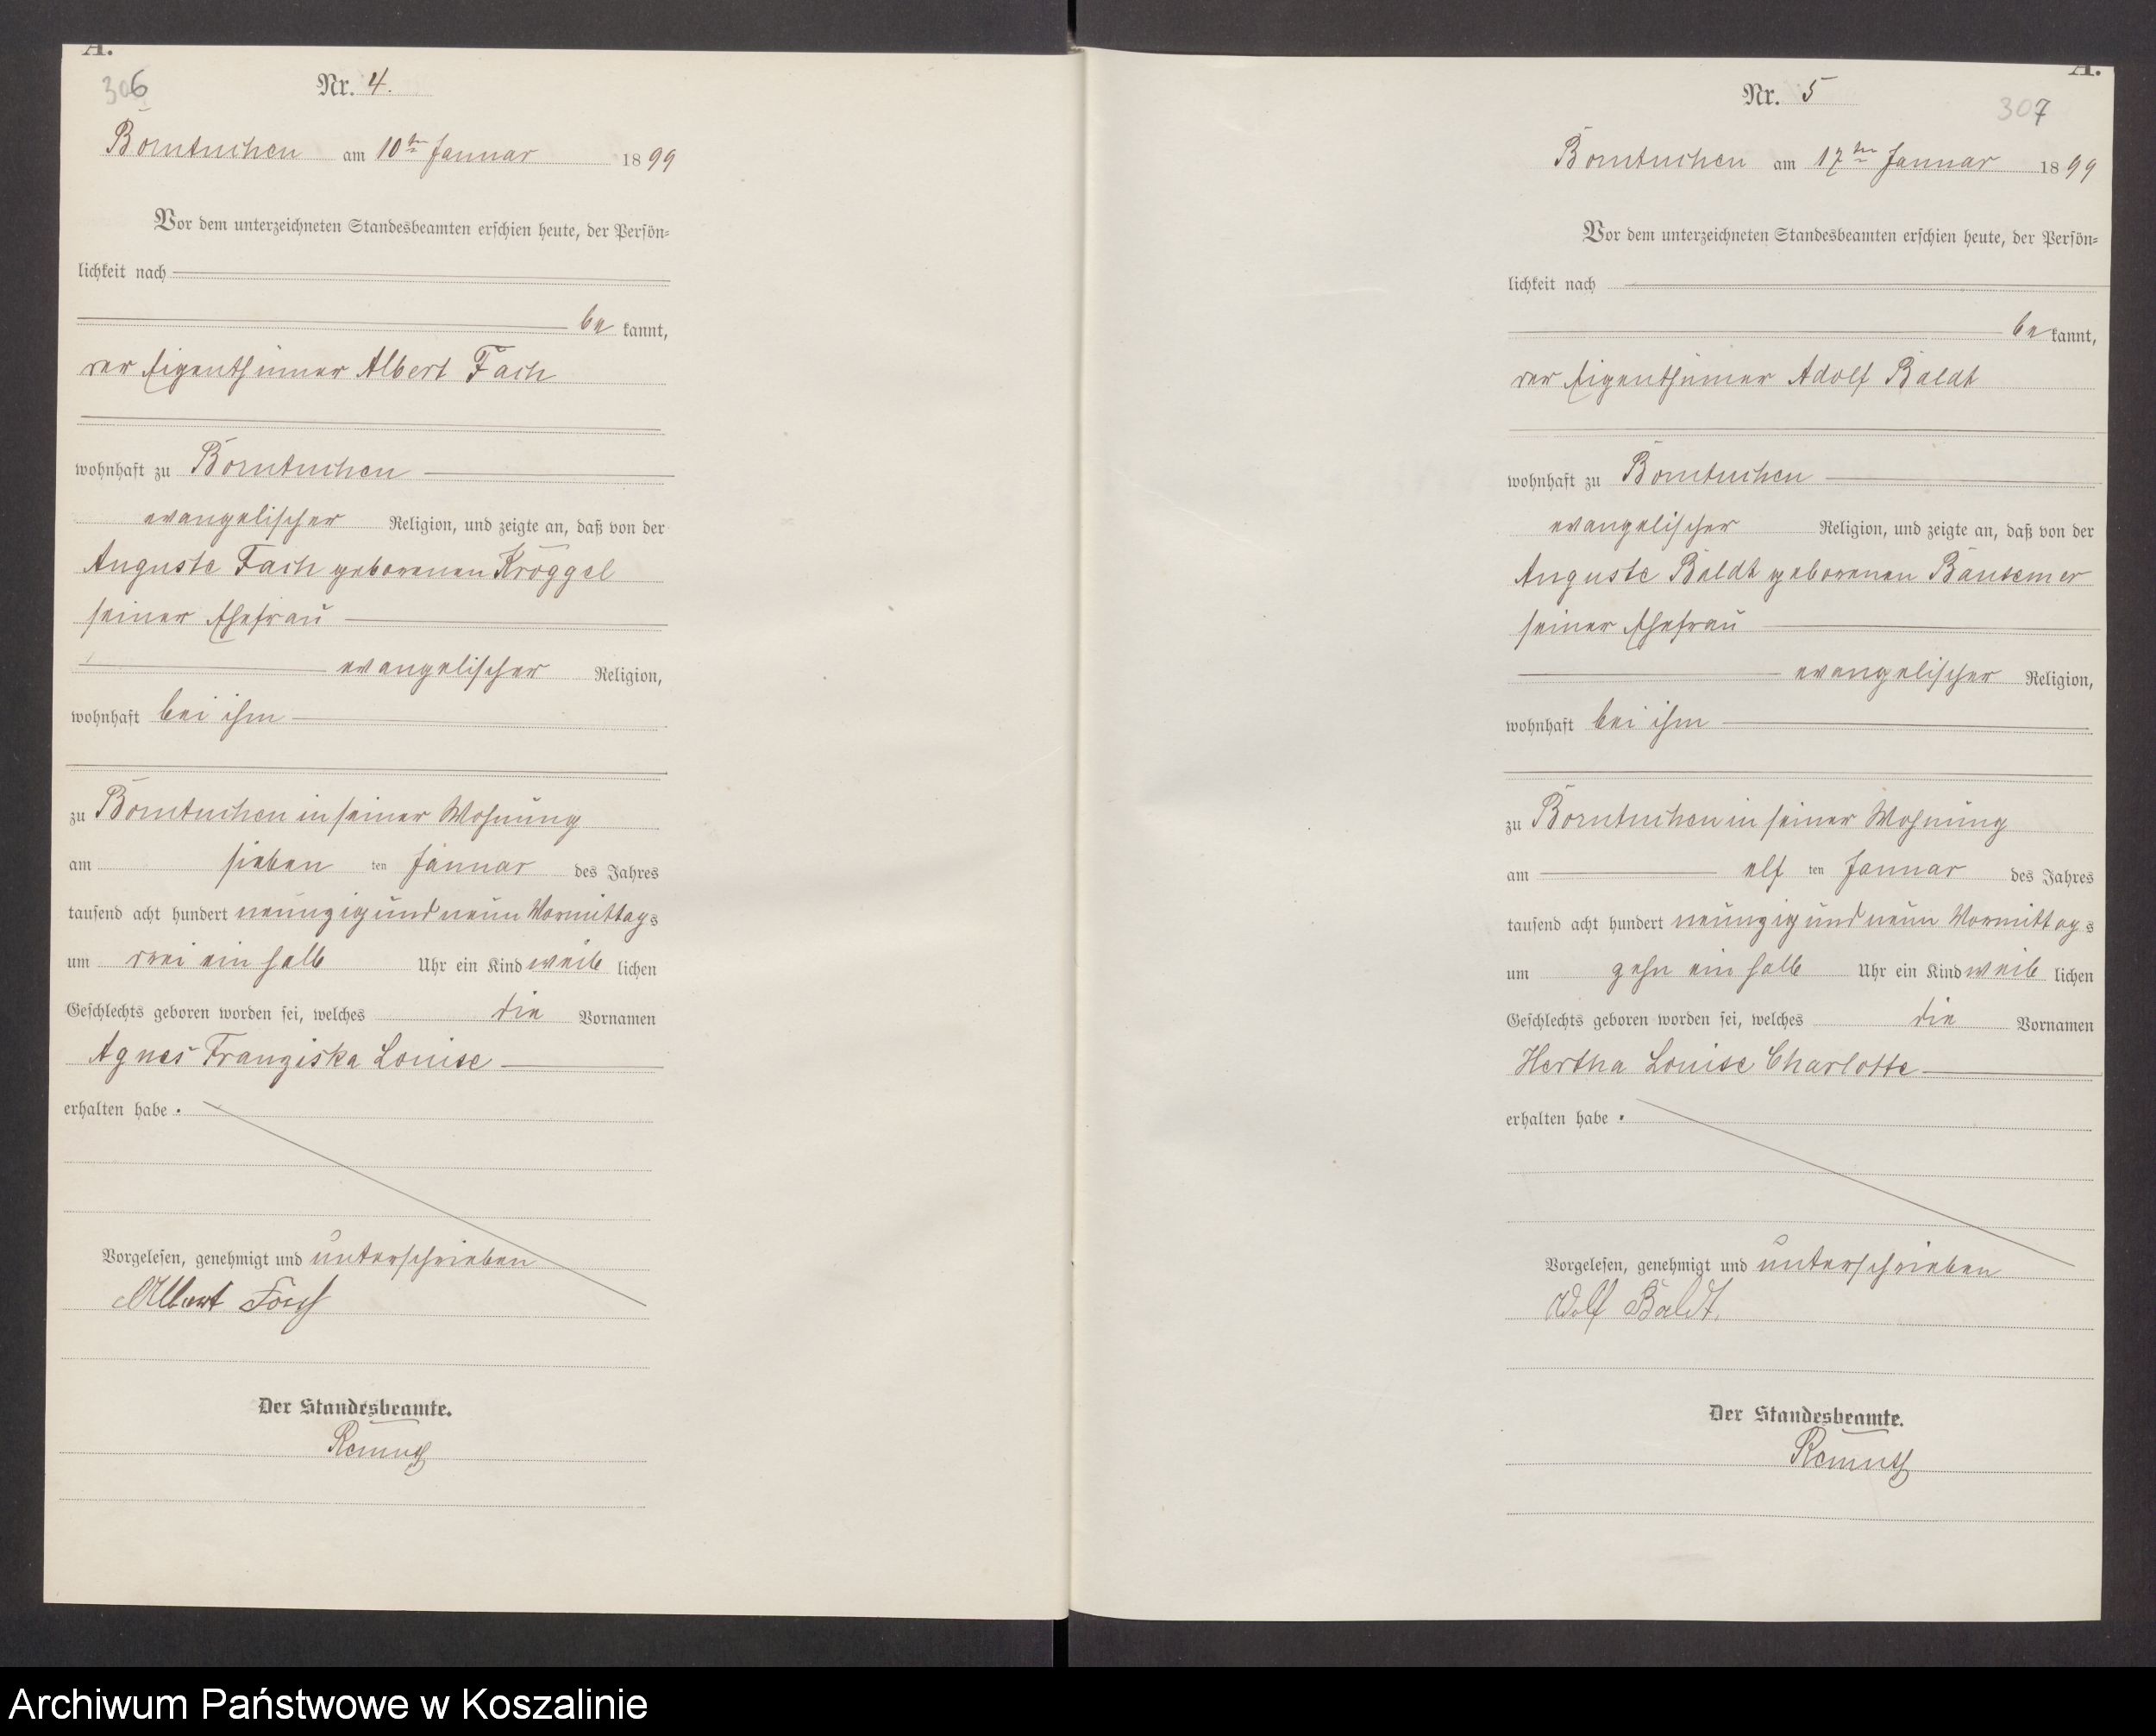 A.
306
Nr. 4.
Borntuchen am 10ten Januar 1899
Vor dem unterzeichneten Standesbeamten erschien heute, der Persön-
lichkeit nach
be kannt,
der Eigenthümer Albert Fach
wohnhaft zu Borntuchen
evangelischer Religion, und zeigte an, daß von der
Auguste Fach geborenen Kroggel
seiner Ehefrau
evangelischer Religion,
wohnhaft bei ihm
zu Borntuchen in seiner Wohnung
am sieben ten Januar des Jahres
tausend acht hundert neunzig und neun Vormittags
um drei ein halb Uhr ein Kind weib lichen
Geschlechts geboren worden sei, welches die Vornamen
Agnes Franziska Louise
erhalten habe .
Vorgelesen, genehmigt und unterschrieben
Albert Fach
Der Standesbeamte.
A.
307
Nr. 5
Borntuchen am 17ten Januar 1899
Vor dem unterzeichneten Standesbeamten erschien heute, der Persön-
lichkeit nach
be kannt,
der Eigenthümer Adolf Baldt
wohnhaft zu Borntuchen
evangelischer Religion, und zeigte an, daß von der
Auguste Baldt geborenen
seiner Ehefrau
evangelischer Religion,
wohnhaft bei ihm
zu Borntuchen in seiner Wohnung
am elf ten Januar des Jahres
tausend acht hundert neunzig und neun Vormittags
um zehn ein halb Uhr ein Kind weib lichen
Geschlechts geboren worden sei, welches die Vornamen
Hertha Louise Charlotte
erhalten habe .
Vorgelesen, genehmigt und unterschrieben
Adolf Baldt.
Der Standesbeamte.
Archiwum Państwowe w Koszalinie